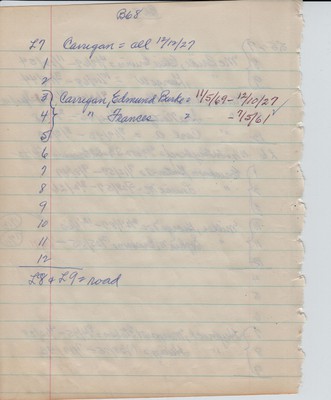 B68
L7 Carrigan = all 12/17/27
1
2
3 Carrigan, Edmund Burke = 11/5/69 - 12/10/27
4 " Frances = - 7/5/61 ✓
5
6
7
8
9
10
11
12
L8 & L9 = road